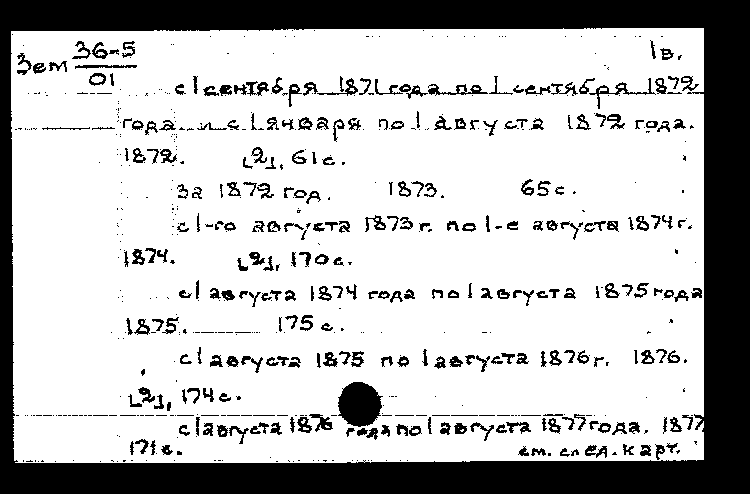 Зем 36-5 1в.
01
с 1 сентября 1871 года по 1 сентября 1872
года и с 1 января по 1 августа 1872 года.
1872. [2], 61с.
За 1872 год. 1873. 65с.
с 1-го августа 1873г. по 1-е августа 1874г.
1874. [2], 170с.
с 1 августа 1874 года по 1 августа 1875 года
1875. 175с.
с 1 августа 1875 по 1 августа 1876г. 1876.
[2], 174с.
с 1 августа 1876 года по 1 августа 1877 года. 1877
171с. см. след. карт.